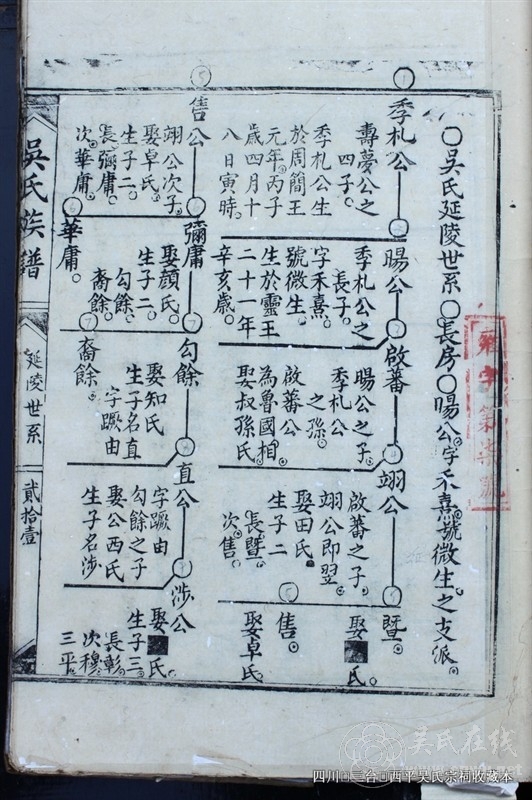 ○吳氏延陵世系○長房○暘公字禾熹號微生之支派
季札公
壽夢公之
四子
季札公生
於周簡王
元年丙子
歲四月十
八日寅時
暘公
季札公之
長子
字禾熹
號微生
生於靈王
二十一年
辛亥歲
啟蕃
暘公之子
季札公
之孫
啟蕃公
為魯國相
娶叔孫氏
翊公
啟蕃之子
翊公即翌
娶田氏
生子二
長暨
次售
暨
娶■氏
售
娶卓氏
售公
翊公次子
娶卓氏
生子二
長彌庸
次華庸
彌庸
娶顏氏
生子二
勾餘
裔餘
華庸
勾餘
娶知氏
生子名直
字蹶由
裔餘
直公
字蹶由
勾餘之子
娶公西氏
生子名涉
涉公
娶■氏
生子三
長彰
次穆
三平
吳氏族譜
延陵世系
貳拾壹
吳氏在线
四川□三台□西平吴氏宗祠收藏本